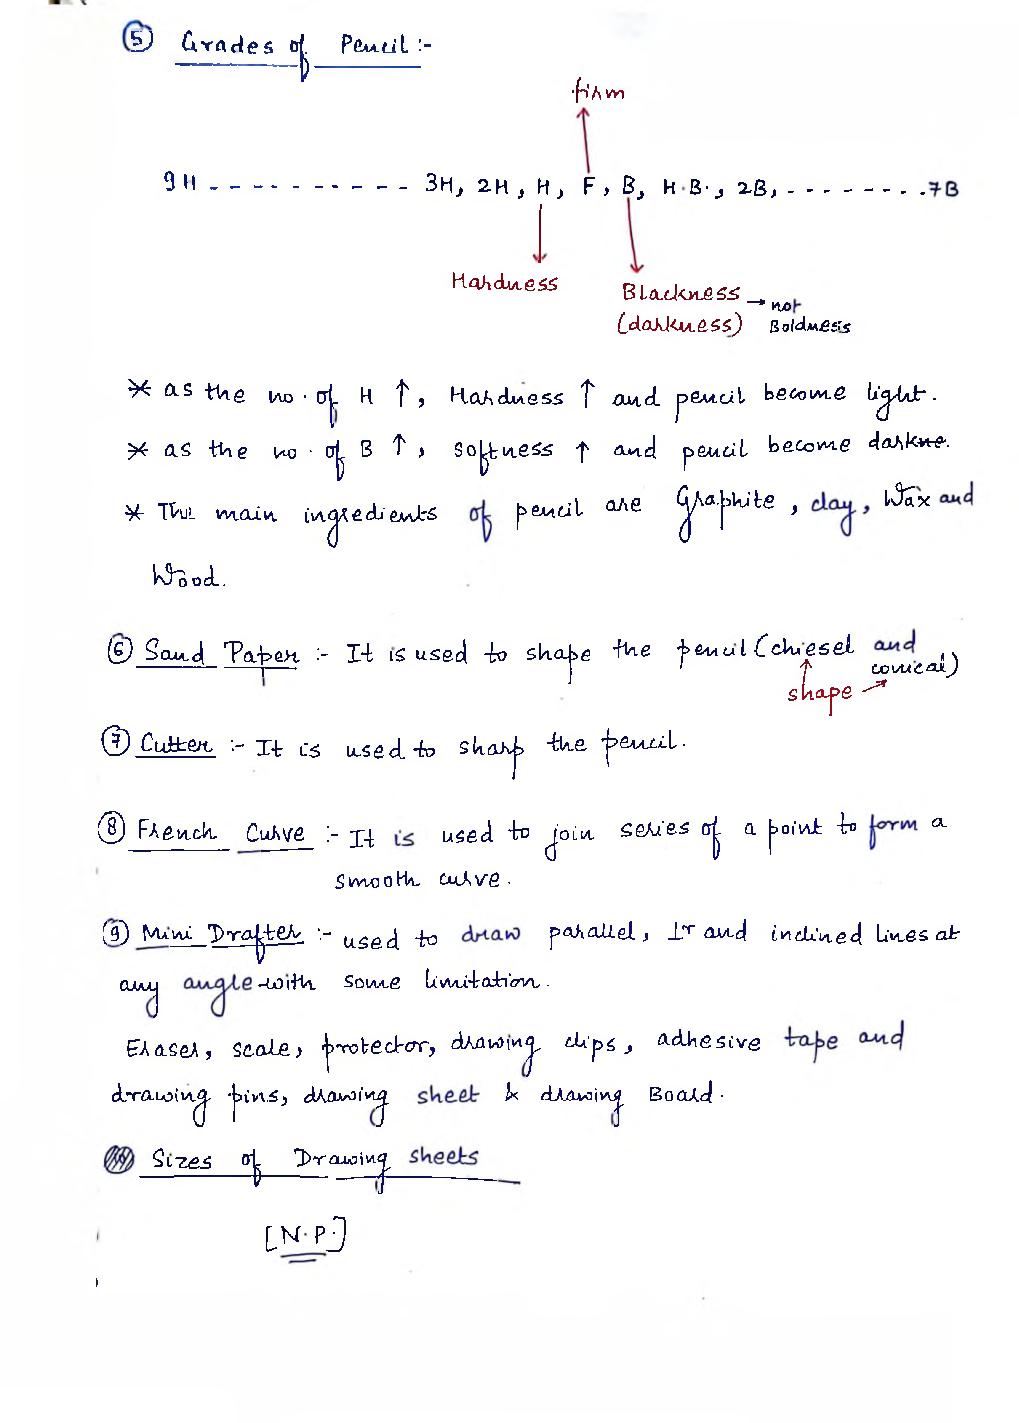 ⑤ Grades of Pencil :-
firm
9H - - - - - - - - - - - 3H, 2H, H, F, B, H.B., 2B, - - - - - - - . .7B
Hardness
Blackness → not
(darkness) Boldness
* as the no. of H ↑, Hardness ↑ and pencil become light.
* as the no. of B ↑, softness ↑ and pencil become darkne.
* The main ingredients of pencil are Graphite, clay, Wax and
Wood.
⑥ Sand Paper :- It is used to shape the pencil (chiesel and
conical)
shape
⑦ Cutter :- It is used to sharp the pencil.
⑧ French Curve :- It is used to join series of a point to form a
smooth curve.
⑨ Mini Drafter :- used to draw parallel, ⊥r and inclined lines at
any angle with some limitation.
Eraser, scale, protector, drawing clips, adhesive tape and
drawing pins, drawing sheet & drawing Board.
Sizes of Drawing sheets
[N.P.]